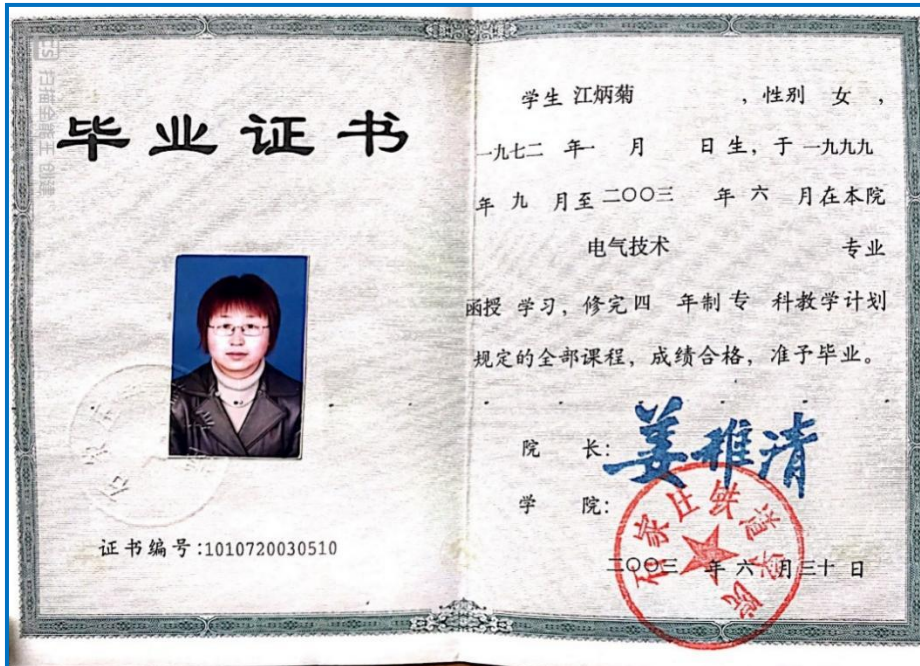 扫描全能王 创建
毕业证书
证书编号:1010720030510
学生 江炳菊 ,性别 女 ,
一九七二 年一 月 日生,于 一九九九
年 九 月至 二〇〇三 年 六 月在本院
电气技术 专业
函授 学习,修完四 年制 专 科教学计划
规定的全部课程,成绩合格,准予毕业。
院 长: 姜稚清
学 院:
石家庄铁道学院
二〇〇三 年 六 月三十 日